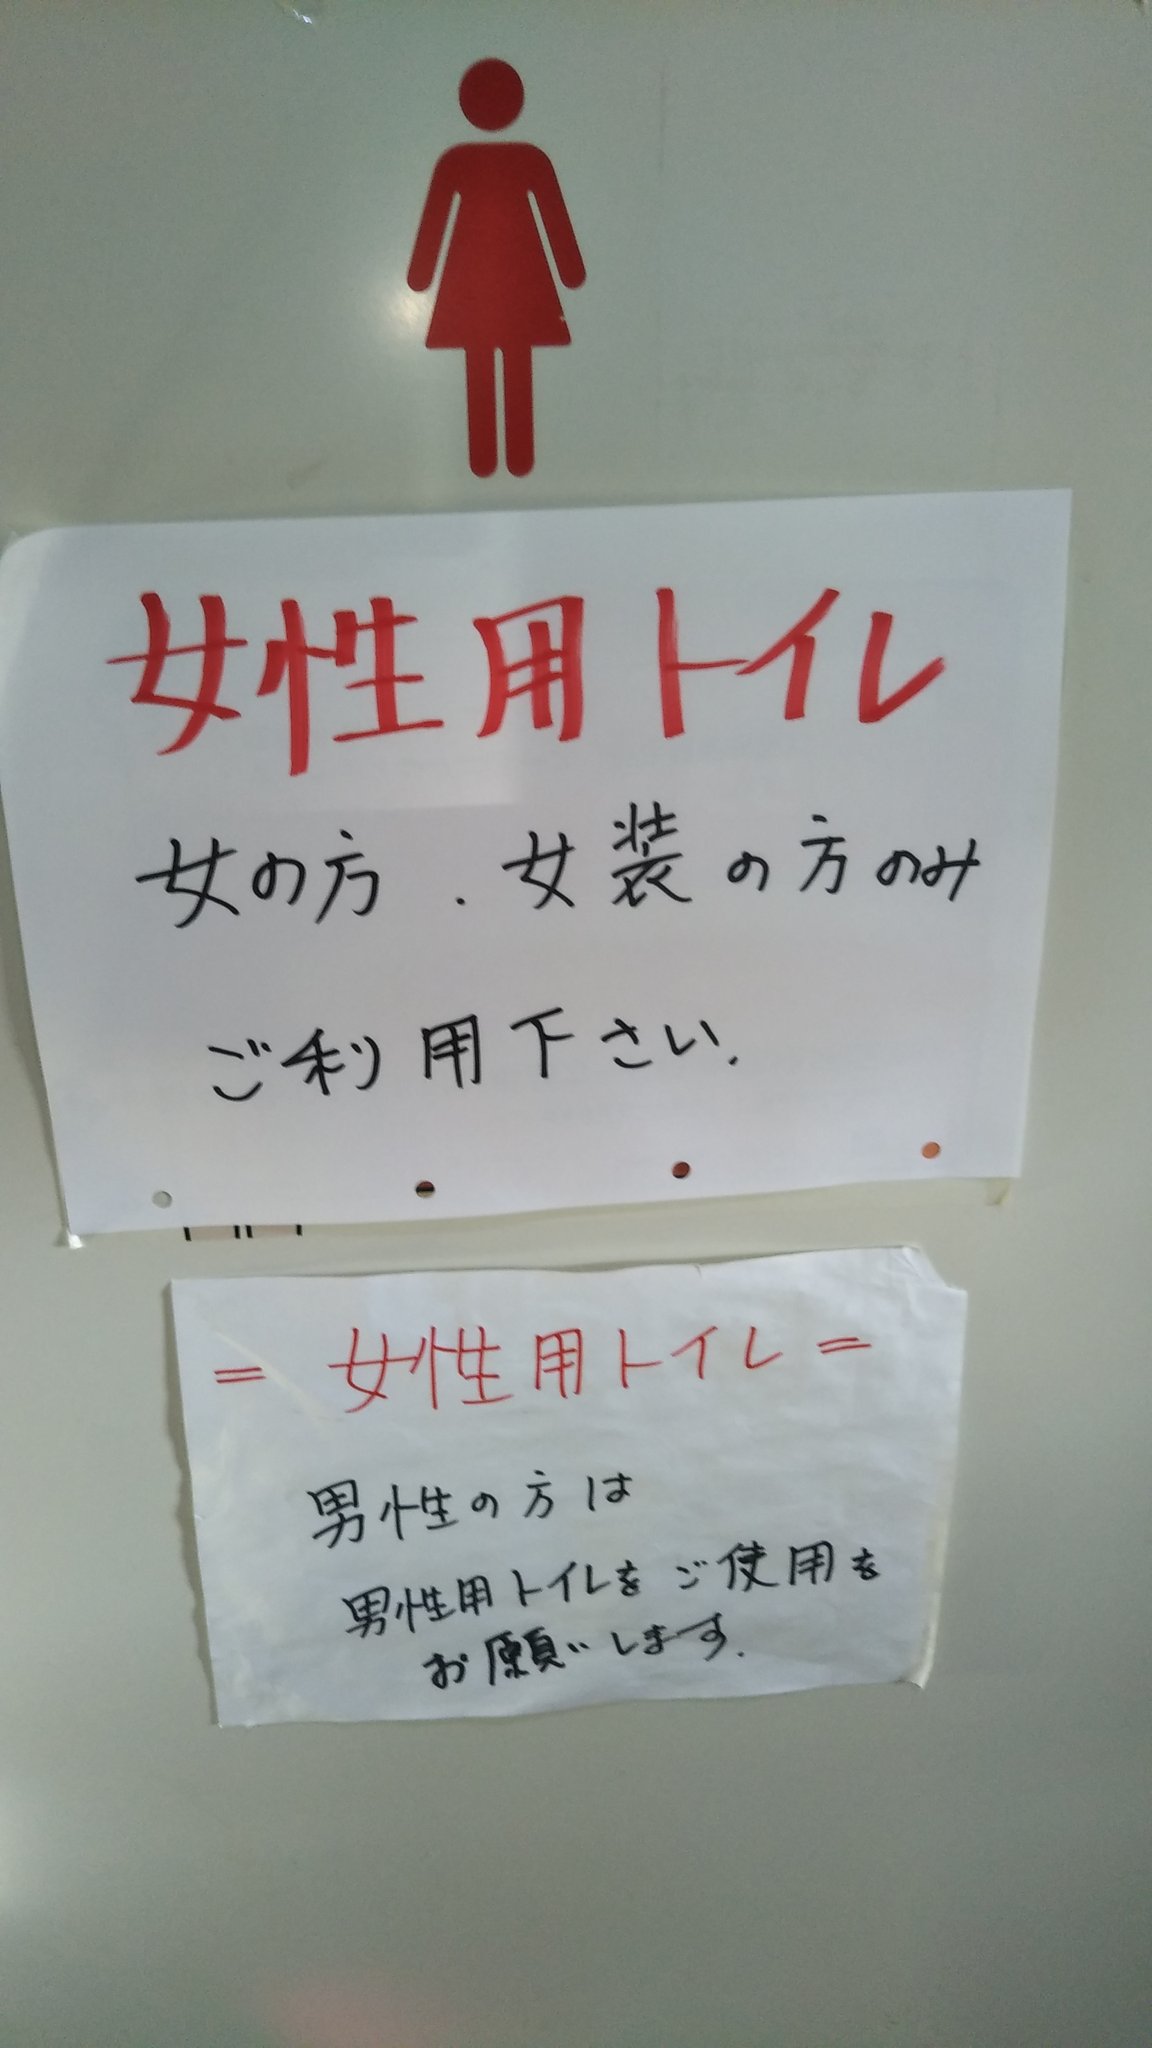 女性用トイレ
女の方．女装の方のみ
ご利用下さい.
= 女性用トイレ =
男性の方は
男性用トイレをご使用を
お願いします.